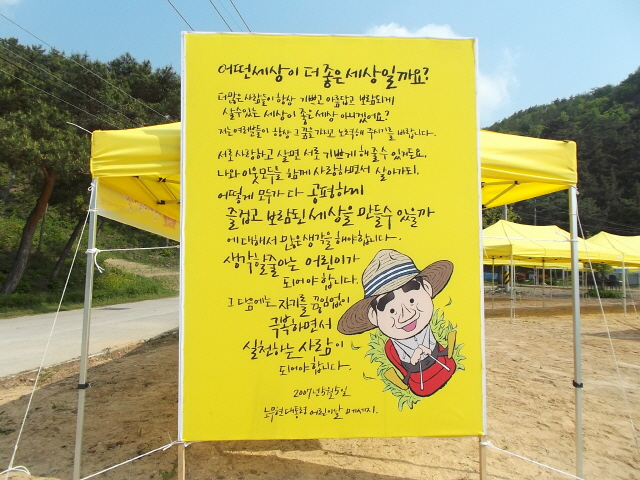 어떤세상이 더 좋은세상일까요?
더많은 사람들이 항상 기쁘고 아름답고 보람되게
살수있는 세상이 좋은 세상 아니겠어요?
저는 여러분들이 항상 그 꿈을 가지고 노력해 주시기를 바랍니다.
서로 사랑하고 살면 서로 기쁘게 해 줄수 있거든요.
나와 이웃 모두를 함께 사랑하면서 살아가되,
어떻게 모두가 다 공평하게
즐겁고 보람된 세상을 만들수 있을까
에 대해서 많은 생각을 해야합니다.
생각할줄아는 어린이가
되어야 합니다.
그 다음에는 자기를 끊임없이
극복하면서
실천하는 사람이
되어야 합니다.
2007년 5월 5일
노무현 대통령 어린이날 메세지.